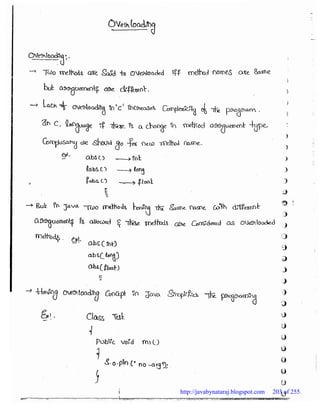 Overloading
Overloading:-
→ Two methods are Said to overloaded iff method names are Same
but arguments are different.
→ Lack of overloading in 'c' increases Complexity of the program.
In C, language if there is a change in method argument type.
Compulsory we should go for new method name.
Ex: abs() → int
labs() → long
fabs() → float
→ But in Java Two methods having the Same name with different
arguments is allowed & these methods are Considered as overloaded
methods. Ex: abs(int)
abs(long)
abs(float)
→ Having overloading Concept in Java Simplifies the programming
Ex: Class Test
{
Public void m1()
{
S.o.pln("no-arg");
}
http://javabynataraj.blogspot.com 203 of 255.